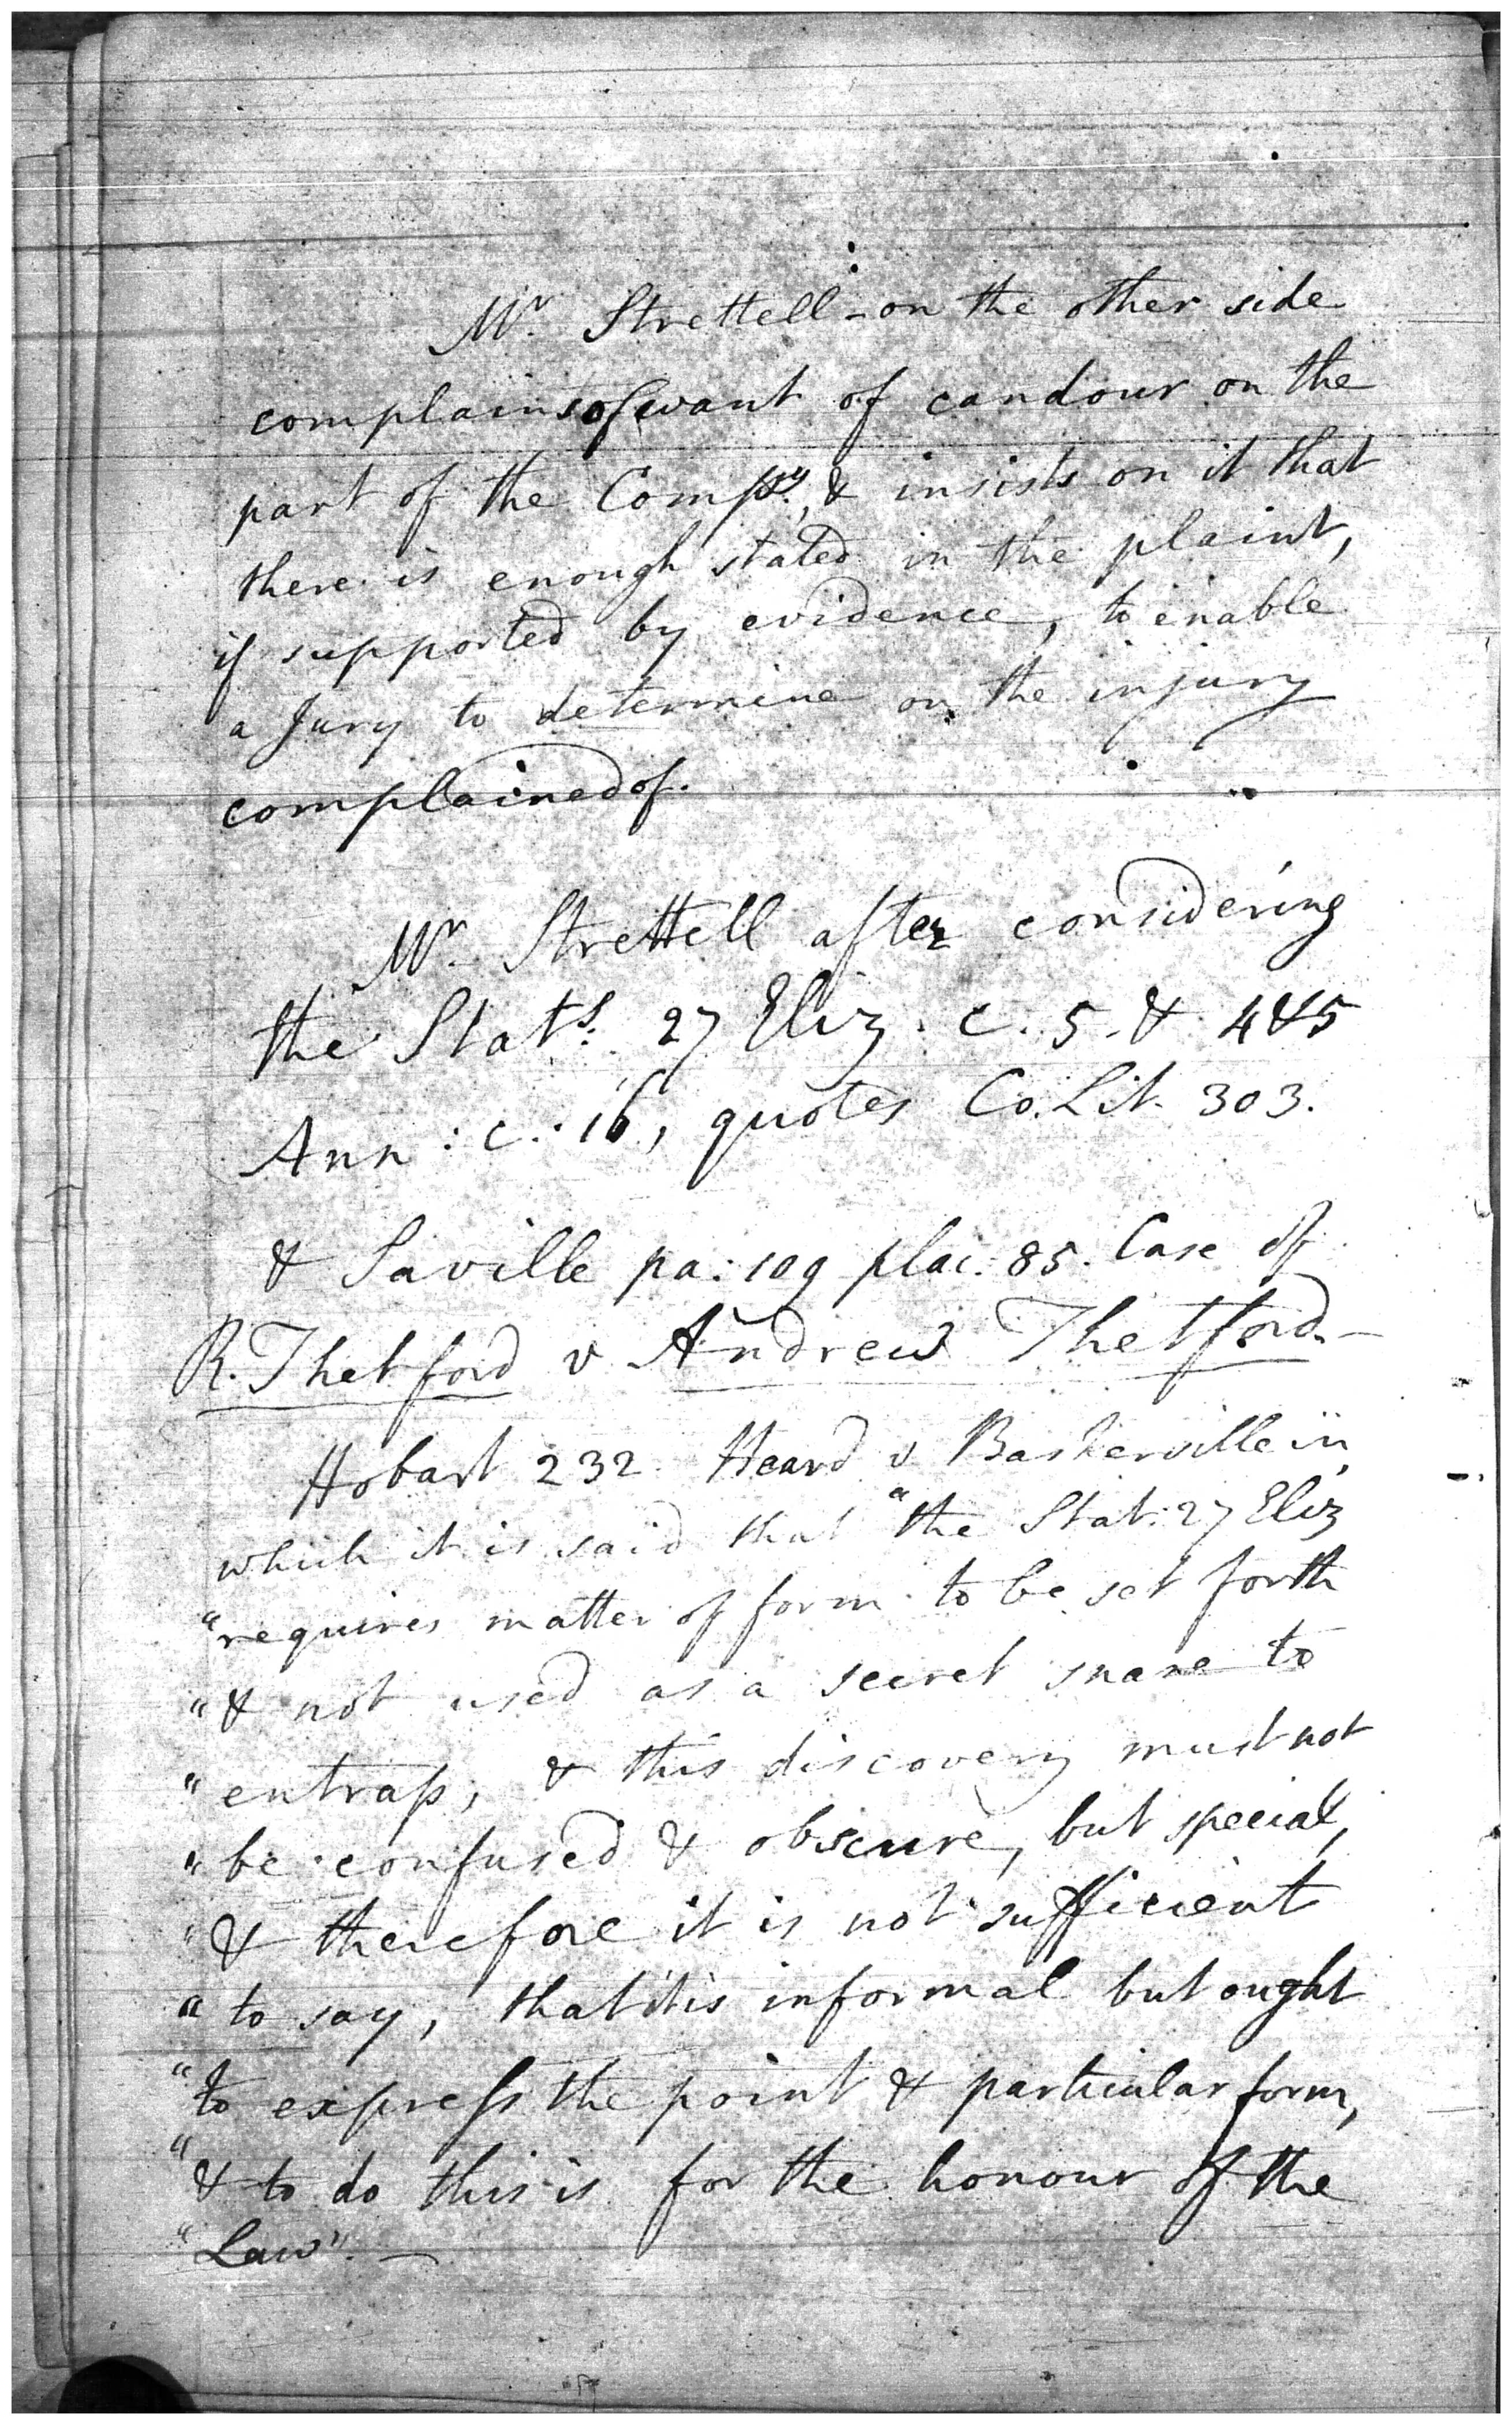 Mr. Strettell - on the other side
complains of want of candour on the
part of the Compy., & insists on it that
there is enough stated in the plaint,
if supported by evidence, to enable
a Jury to determine on the injury
complained of.
Mr. Strettell after considering
the Stats. 27 Eliz. c. 5. & 4 & 5
Ann: c. 16, quotes Co. Lit. 303.
& Saville pa: 109 plai: 85. Case of
R. Thetford v Andrew Thetford. -
Hobart 232. Heard v Baskerville in
which it is said that "the Stat: 27 Eliz
"requires matter of form to be set forth
"& not used as a secret snare to
"entrap, & this discovery must not
"be confused & obscure, but special,
"& therefore it is not sufficient
"to say, that it is informal but ought
"to express the point & particular form,
"& to do this is for the honour of the
"Law". -